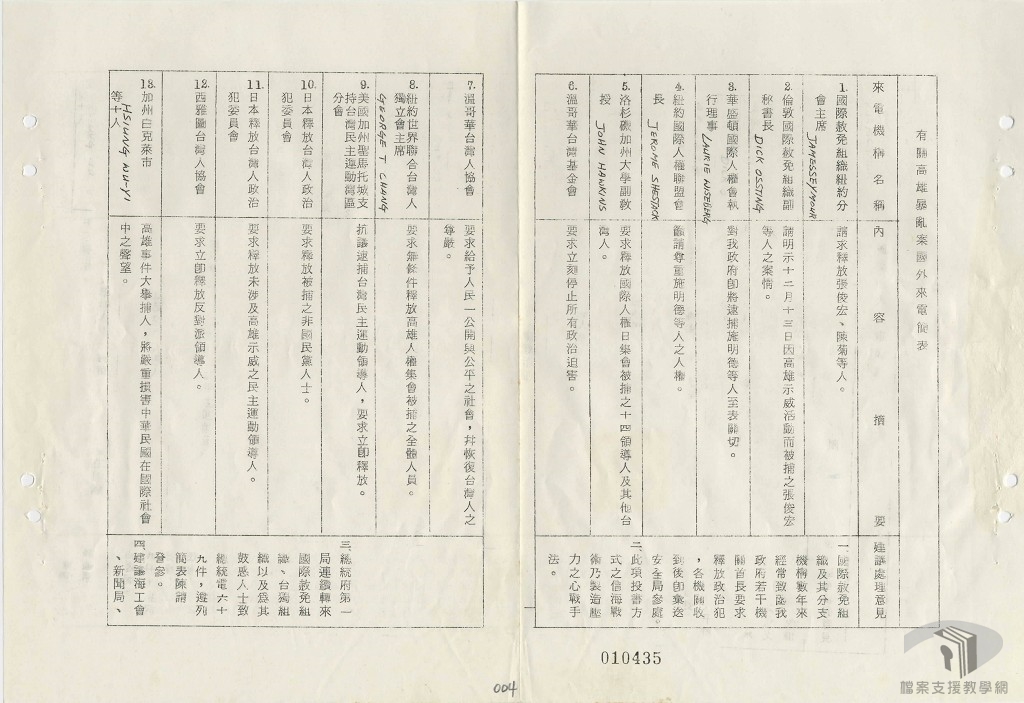 有關高雄暴亂案國外來電簡表
來電機構名稱
內容摘要
建議處理意見
1.國際赦免組織紐約分
會主席 JAMESSEYMOUR
請求釋放張俊宏、陳菊等人。
2.倫敦國際赦免組織副
秘書長 DICK OSSTING
請明示十二月十三日因高雄示威活動而被捕之張俊宏
等人之案情。
3.華盛頓國際人權會執
行理事 LAURIE WISEBERG
對我政府即將逮捕施明德等人至表關切。
4.紐約國際人權聯盟會
長 JEROME SHESTACK
籲請尊重施明德等人之人權。
5.洛杉磯加州大學副教
授 JOHN HAWKINS
要求釋放國際人權日集會被捕之十四領導人及其他台
灣人。
6.溫哥華台灣基金會
要求立刻停止所有政治迫害。
一、國際赦免組
織及其分支
機構數年來
經常致函我
政府若干機
關首長要求
釋放政治犯
,各機關收
到後即彙送
安全局參處。
二、此項投書方
式之信海戰
術乃製造壓
力之心戰手
法。
7.溫哥華台灣人協會
要求給予人民一公開與公平之社會,並恢復台灣人之
尊嚴。
8.紐約世界聯合台灣人
獨立會主席
GEORGE T. CHANG
要求無條件釋放高雄人權集會被捕之全體人員。
9.美國加州聖馬托城支
持台灣民主運動灣區
分會
抗議逮捕台灣民主運動領導人,要求立即釋放。
10.日本釋放台灣人政治
犯委員會
要求釋放被捕之非國民黨人士。
11.日本釋放台灣人政治
犯委員會
要求釋放未涉及高雄示威之民主運動領導人。
12.西雅圖台灣人協會
要求立即釋放反對派領導人。
13.加州白克萊市
HSIUNG WU-YI
等十人
高雄事件大舉捕人,將嚴重損害中華民國在國際社會
中之聲望。
三、總統府第一
局連續轉來
國際赦免組
織、台獨組
織以及為其
鼓惑人士致
總統電六十
九件,遴列
簡表陳請
詧參。
四、建議海工會
、新聞局、
010435
004
檔案支援教學網